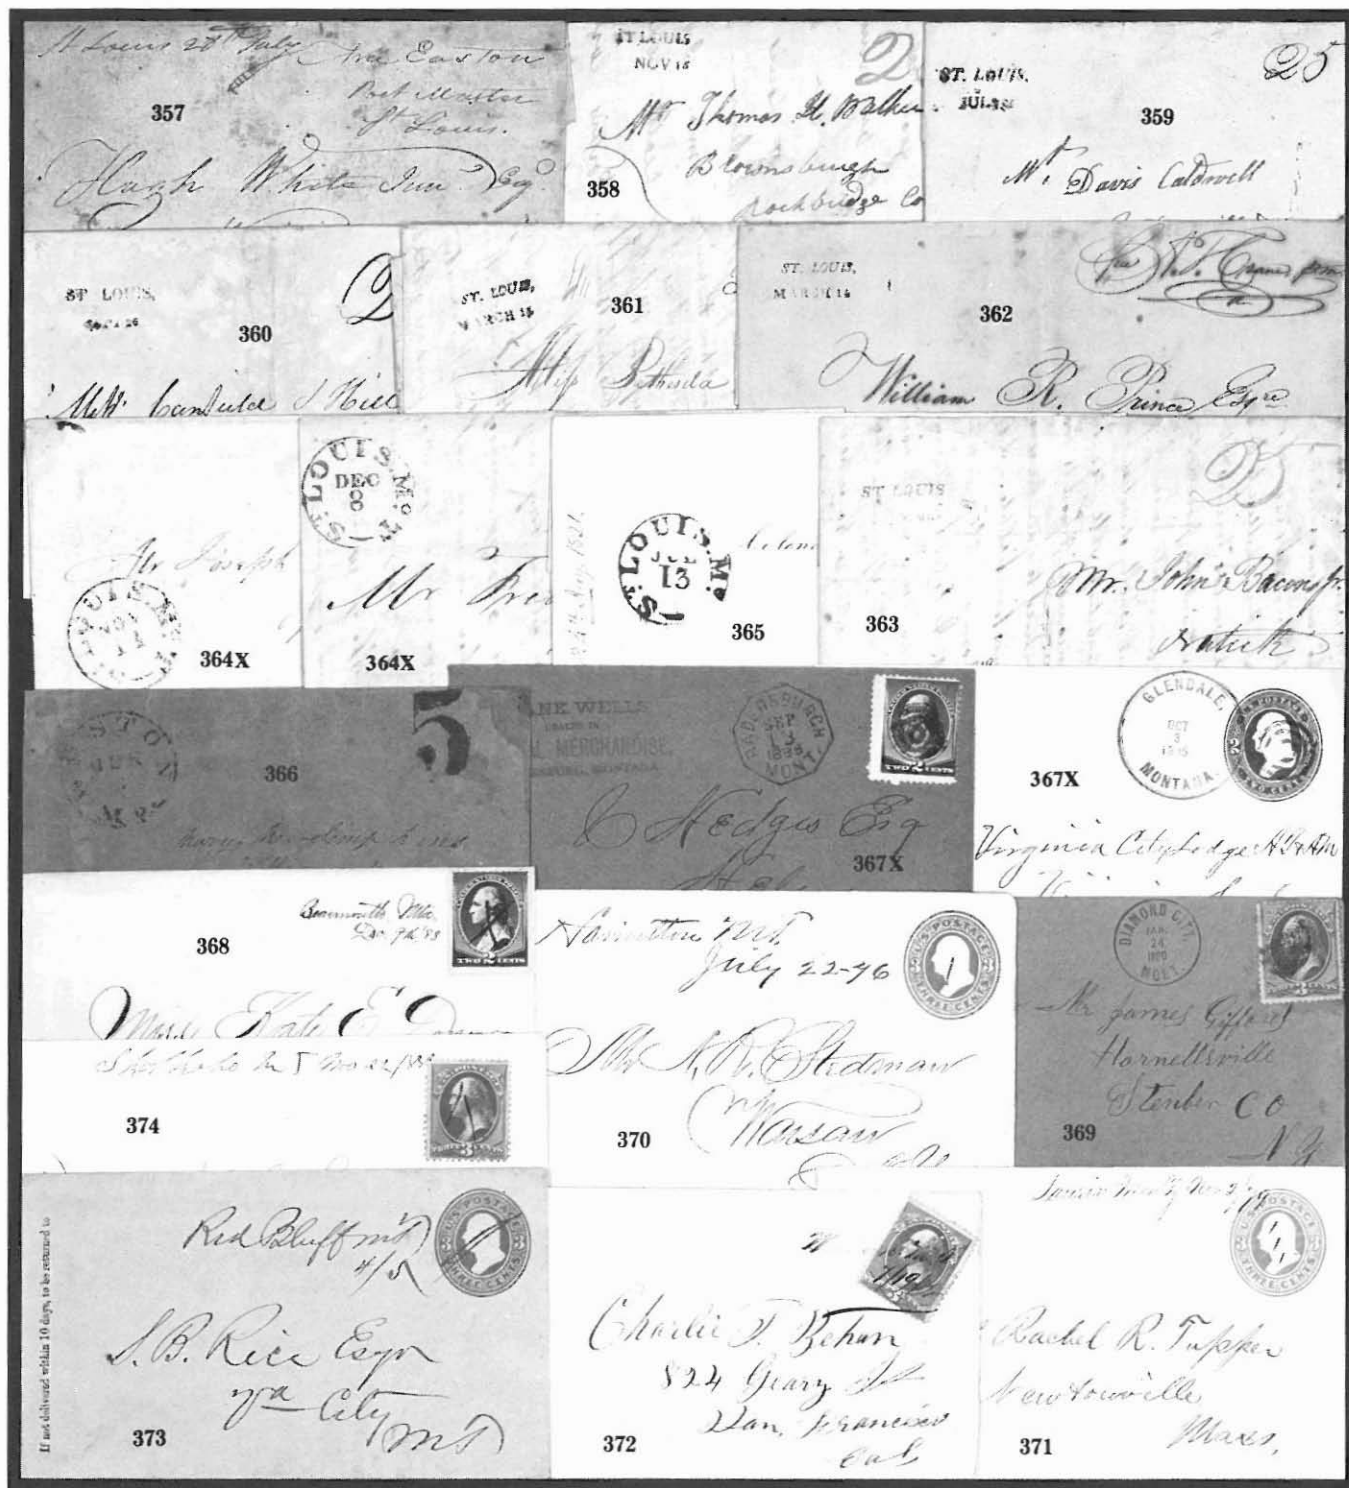 St Louis 28th July
Free Easton
Post Master
St Louis.
357
Hugh White Junr Esqr
ST LOUIS
NOV 18
2
Mr Thomas H. Walker
Brownsburgh
Rockbridge Co
358
ST. LOUIS,
25
359
Mr. Davis Caldwell
ST LOUIS,
2
360
Canfield
ST. LOUIS,
MARCH 15
361
Miss Bethesda
ST. LOUIS,
MARCH 14
362
William R. Prince Esqre
Mr Joseph
LOUIS. Mo
364X
ST. LOUIS. Mo
DEC
8
Mr
364X
ST. LOUIS. Mo
13
365
ST LOUIS
25
Mr. John Bacon Jr.
363
Natick
5
366
WELLS
MERCHANDISE,
MONTANA
SEP
3
MONT.
TWO 2 CENTS
Hedges Esq
367X
GLENDALE,
OCT
3
MONTANA.
367X
Virginia City Lodge AF&AM
Dec. 9th '83
368
TWO 2 CENTS
Miss Kate E
MT.
July 22-76
U.S. POSTAGE
THREE CENTS
N. R. Stedman
Warsaw
370
DIAMOND CITY,
JAN.
24
MONT.
3
Mr James Gifford
Hornellsville
Steuben CO
N Y
369
374
3
If not delivered within 10 days, to be returned to
Red Bluff MT
4/5
U.S. POSTAGE
THREE CENTS
S. B. Rice Esqr
Va City
MT
373
Charlie T. Behan
824 Geary St
San Francisco
Cal
372
U.S. POSTAGE
THREE CENTS
Rachel R. Tupper
Newtonville
Mass.
371